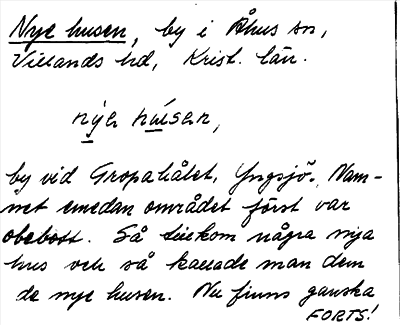 Nye husen, by i Åhus sn,
Villands hd, Krist. län.
nýe húsen,
by vid Gropahålet, Yngsjö. Nam-
net emedan området först var
obebott. Så tillkom några nya
hus och så kallade man dem
de nye husen. Nu finns ganska
FORTS!